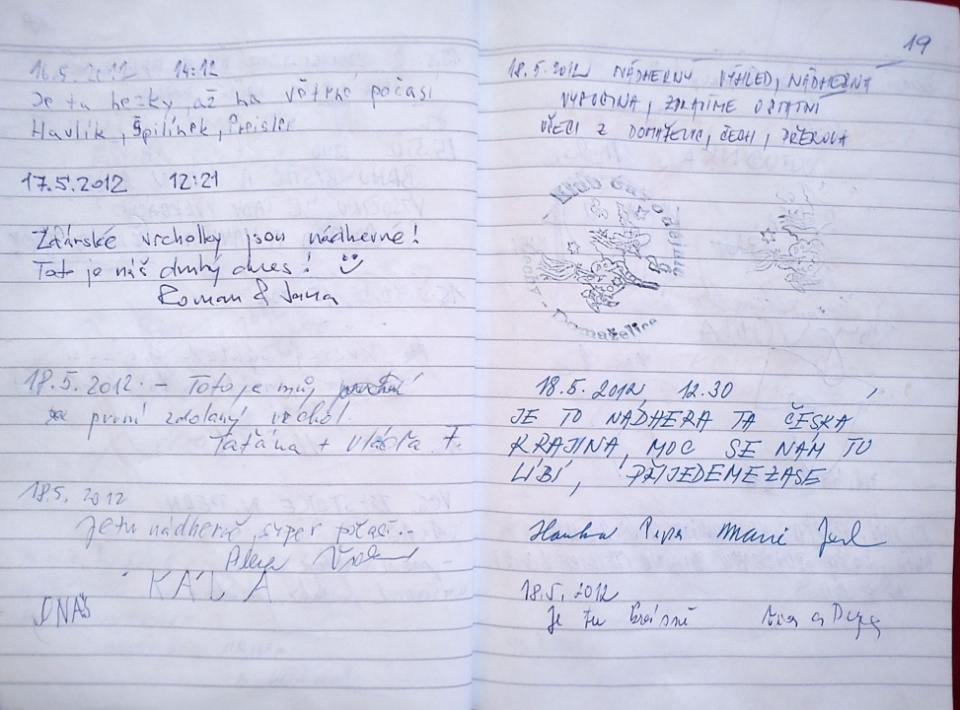 16.5.2012 14:12
Je tu hezky, až na větrné počasí
Havlík, Špilínek, Preisler
17.5.2012 12:21
Žďárské vrcholky jsou nádherné!
Toto je náš druhý dnes!
Roman & Jana
18.5.2012 - Toto je můj
první zdolaný vrchol.
Taťána + Vlasťa F.
18.5. 2012
Je tu nádherně, super počasí...
KÁĹA
19
18.5.2012 NÁDHERNÝ VÝHLED, NÁDHERNÁ
VYSOČINA, ZDRAVÍME OSTATNÍ
VŠICI Z DOMAŽELIC, ČECH, PŘEROVA
Klub čarodějnic
Domaželice
18.5.2012, 12.30
JE TO NÁDHERA TA ČESKÁ
KRAJINA, MOC SE NÁM TO
LÍBÍ, PŘIJEDEME ZASE
Hanka Pepa Marie
18.5.2012
Je tu krásně